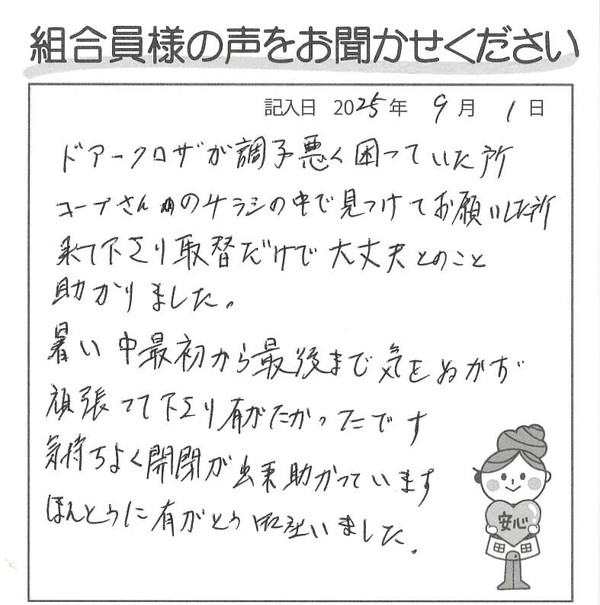 組合員様の声をお聞かせください
記入日 2025年 9月 1日
ドアークロザが調子悪く困っていた所
コープさんのチラシの中で見つけてお願いした所
来て下さり取替だけで大丈夫とのこと
助かりました。
暑い中最初から最後まで気をぬかず
頑張って下さり有がたかったです
気持ちよく開閉が出来助かっています
ほんとうに有がとう御座いました。
安心